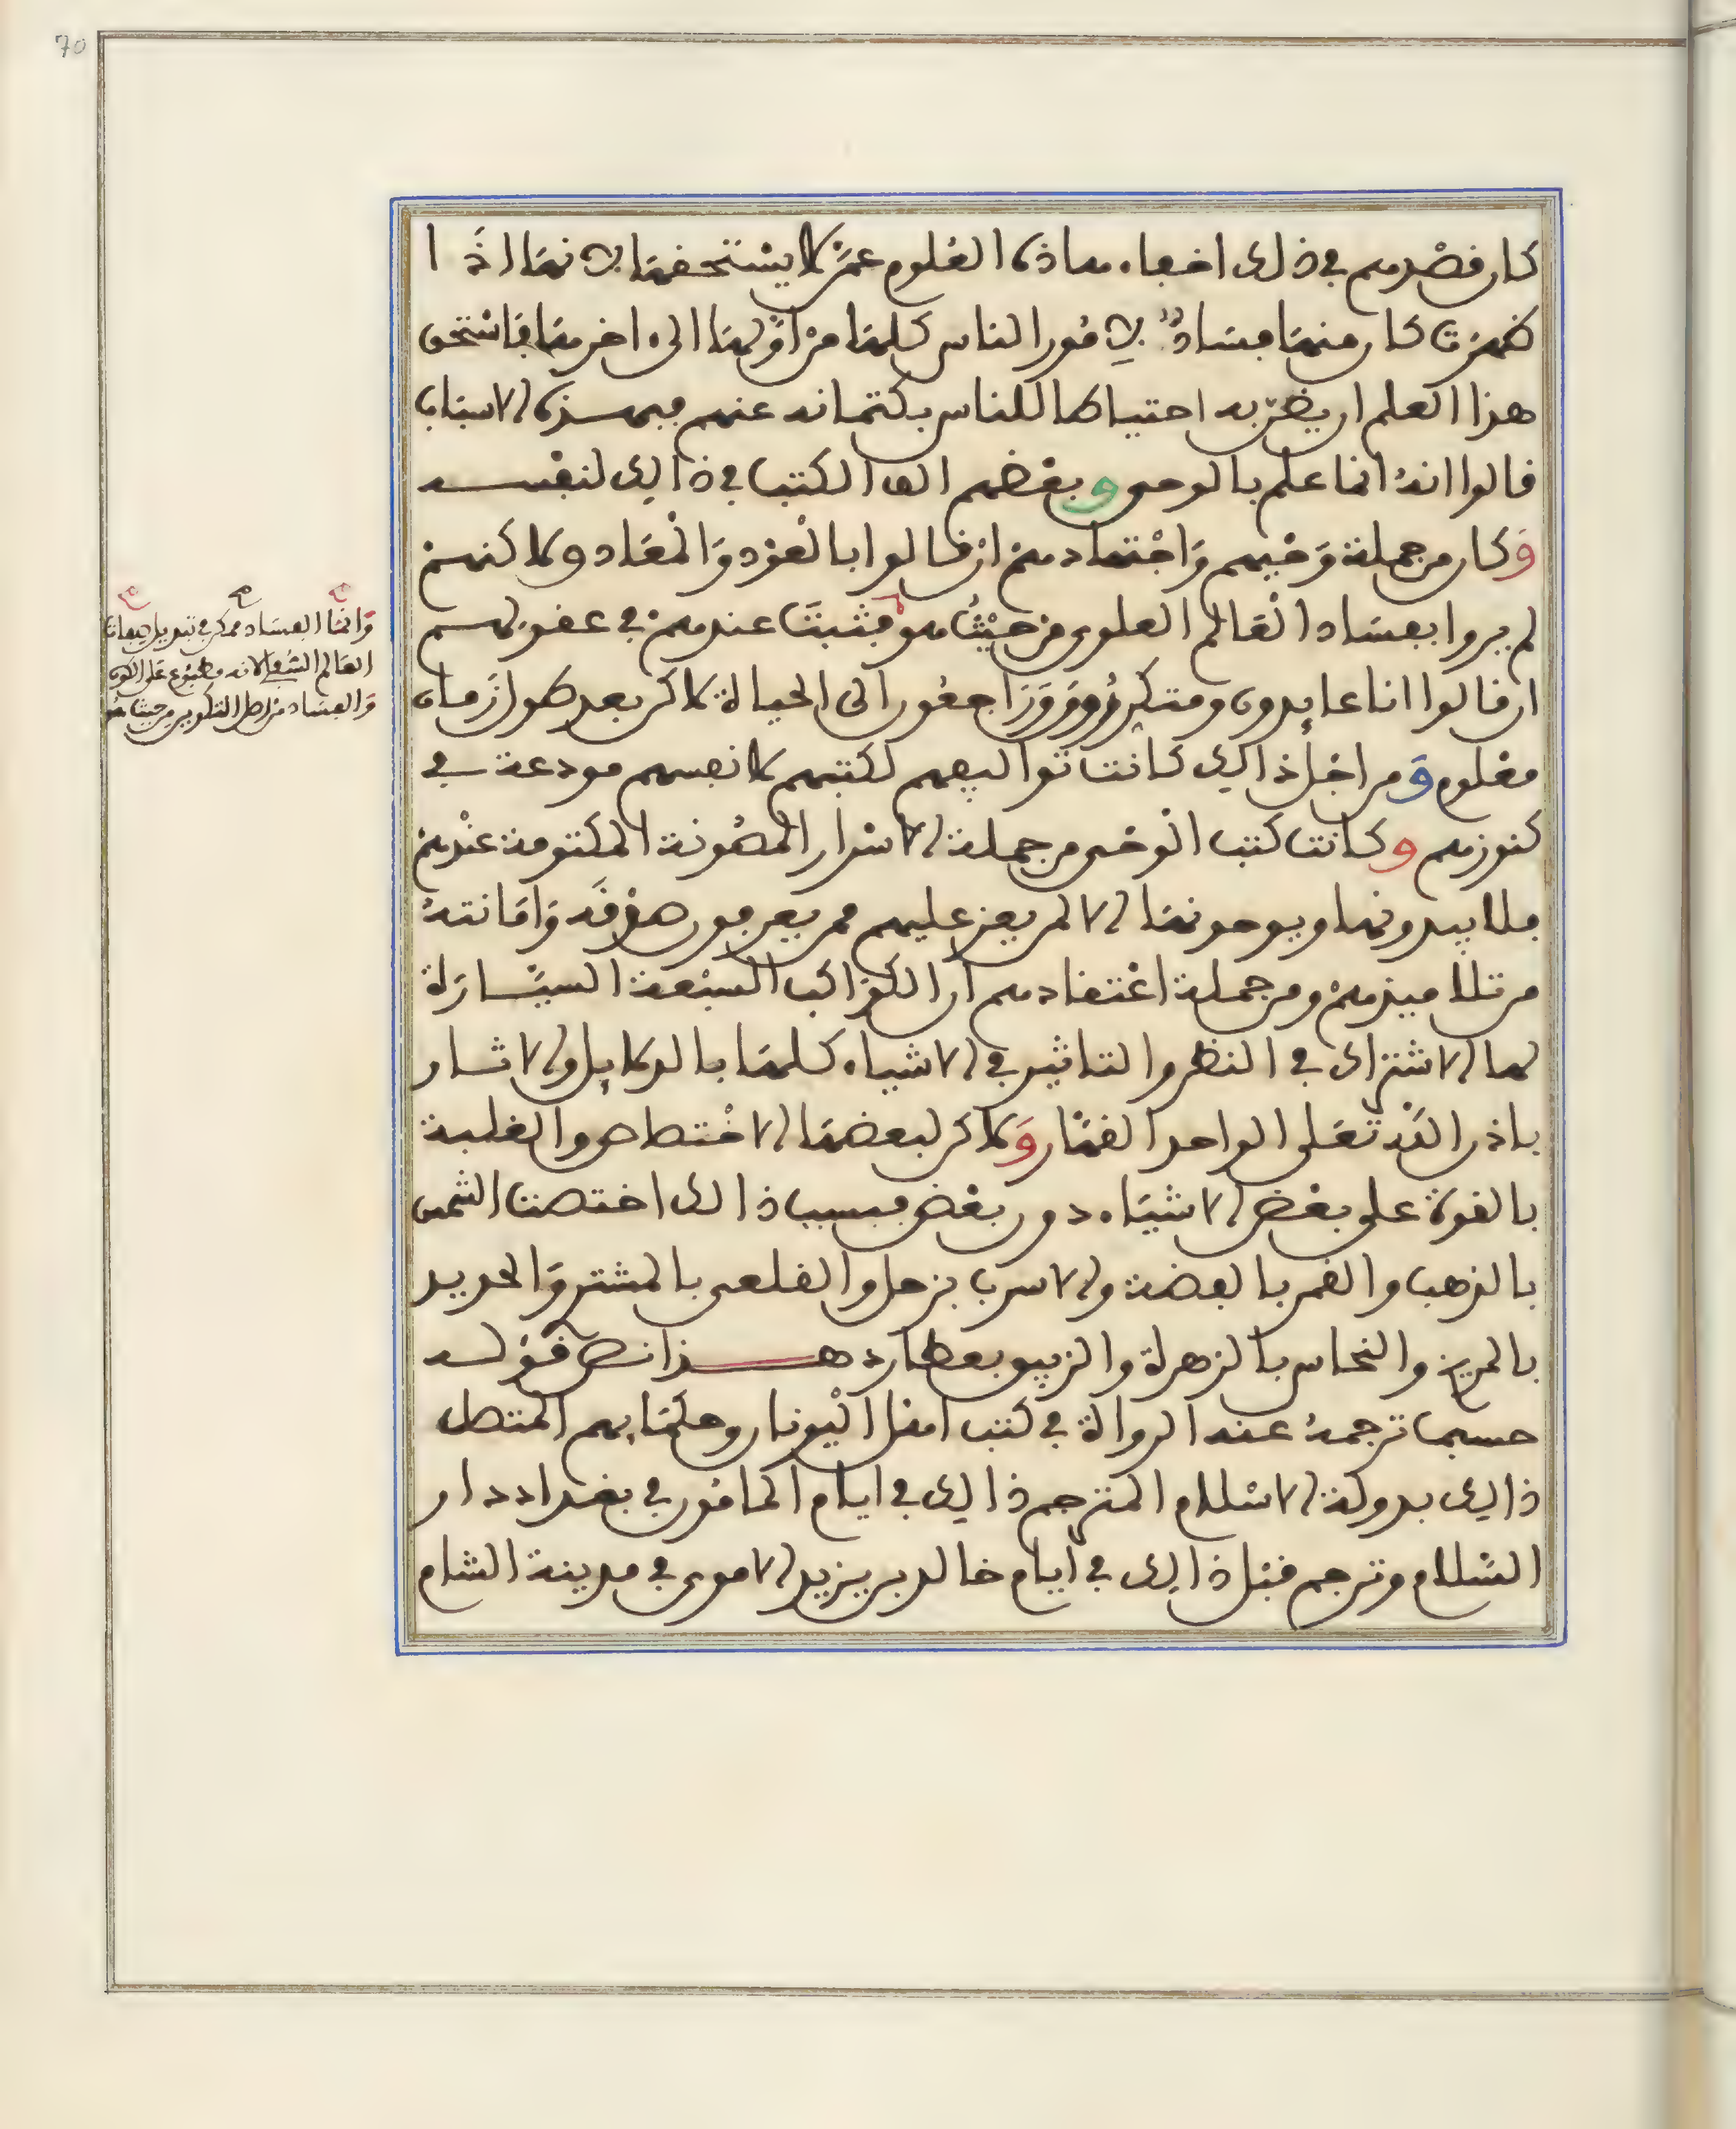 70
كان قصدهم في ذلك اخفاء هاذه العلوم عمن لا يستحقها لانها اذا
ظهرت كان منها فساد لامور الناس كلها من اولها الى اخرها فاستحق
هذا العلم ان يضن به احتياطا للناس بكتمانه عنهم فبهذه الاسباب
قالوا انه انما علم بالوحي وبعضهم الف الكتب في ذالك لنفسه
وكان من جملة وحيهم واجتهادهم ان قالوا بالعود والمعاد ولاكنهم
لم يروا بفساد العالم العلوي من حيث هو فثبت عندهم في عقولهم
ان قالوا انا عايدون ومتكررون وراجعون الى الحياة لاكن بعد طول زمان
معلوم ومن اجل ذالك كانت تواليفهم لكتبهم لانفسهم مودعة في
كنوزهم وكانت كتب الوحي من جملة الاسرار المصونة المكتومة عندهم
فلا يبدونها ويوحونها الا لمن يعز عليهم ممن يعرفون صدقه وامانته
من تلاميذهم ومن جملة اعتقادهم ان الكواكب السبعة السيارة
لها الاشتراك في النظر والتاثير في الاشياء كلها بالدلايل والاثار
باذن الله تعلى الواحد القهار ولاكن لبعضها الاختصاص والغلبة
بالقوة على بعض الاشياء دون بعض فبسبب ذالك اختصت الشمس
بالذهب والقمر بالفضة والاسرب بزحل والقلعي بالمشتر والحديد
بالمريخ والنحاس بالزهرة والزيبق بعطارد هذا نص قوله
حسبما ترجمه عنه الرواة في كتب اهل اليونان وحكمايهم المتصل
ذالك بدولة الاسلام المترجم ذالك في ايام المامون في بغداد دار
السلام وترجم قبل ذالك في ايام خالد بن يزيد الاموي في مدينة الشام
وانما الفساد ممكن في تبديل صفات
العالم السفلي لانه مطبوع على الكون
والفساد من اصل التكوين من حيث هو